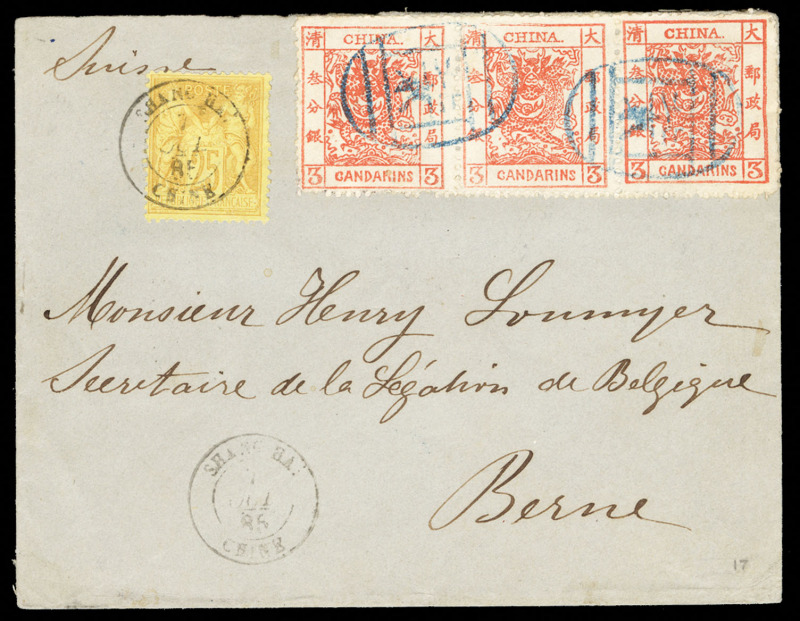 Suisse
清 CHINA. 大
叁分銀 郵政局
3 CANDARINS 3
清 CHINA. 大
叁分銀 郵政局
3 CANDARINS 3
清 CHINA. 大
叁分銀 郵政局
3 CANDARINS 3
25
SHANG HAI
7
85
CHINE
Monsieur Henry Loumyer
Secretaire de la Légation de Belgique
Berne
SHANG HAI
7
85
CHINE
17